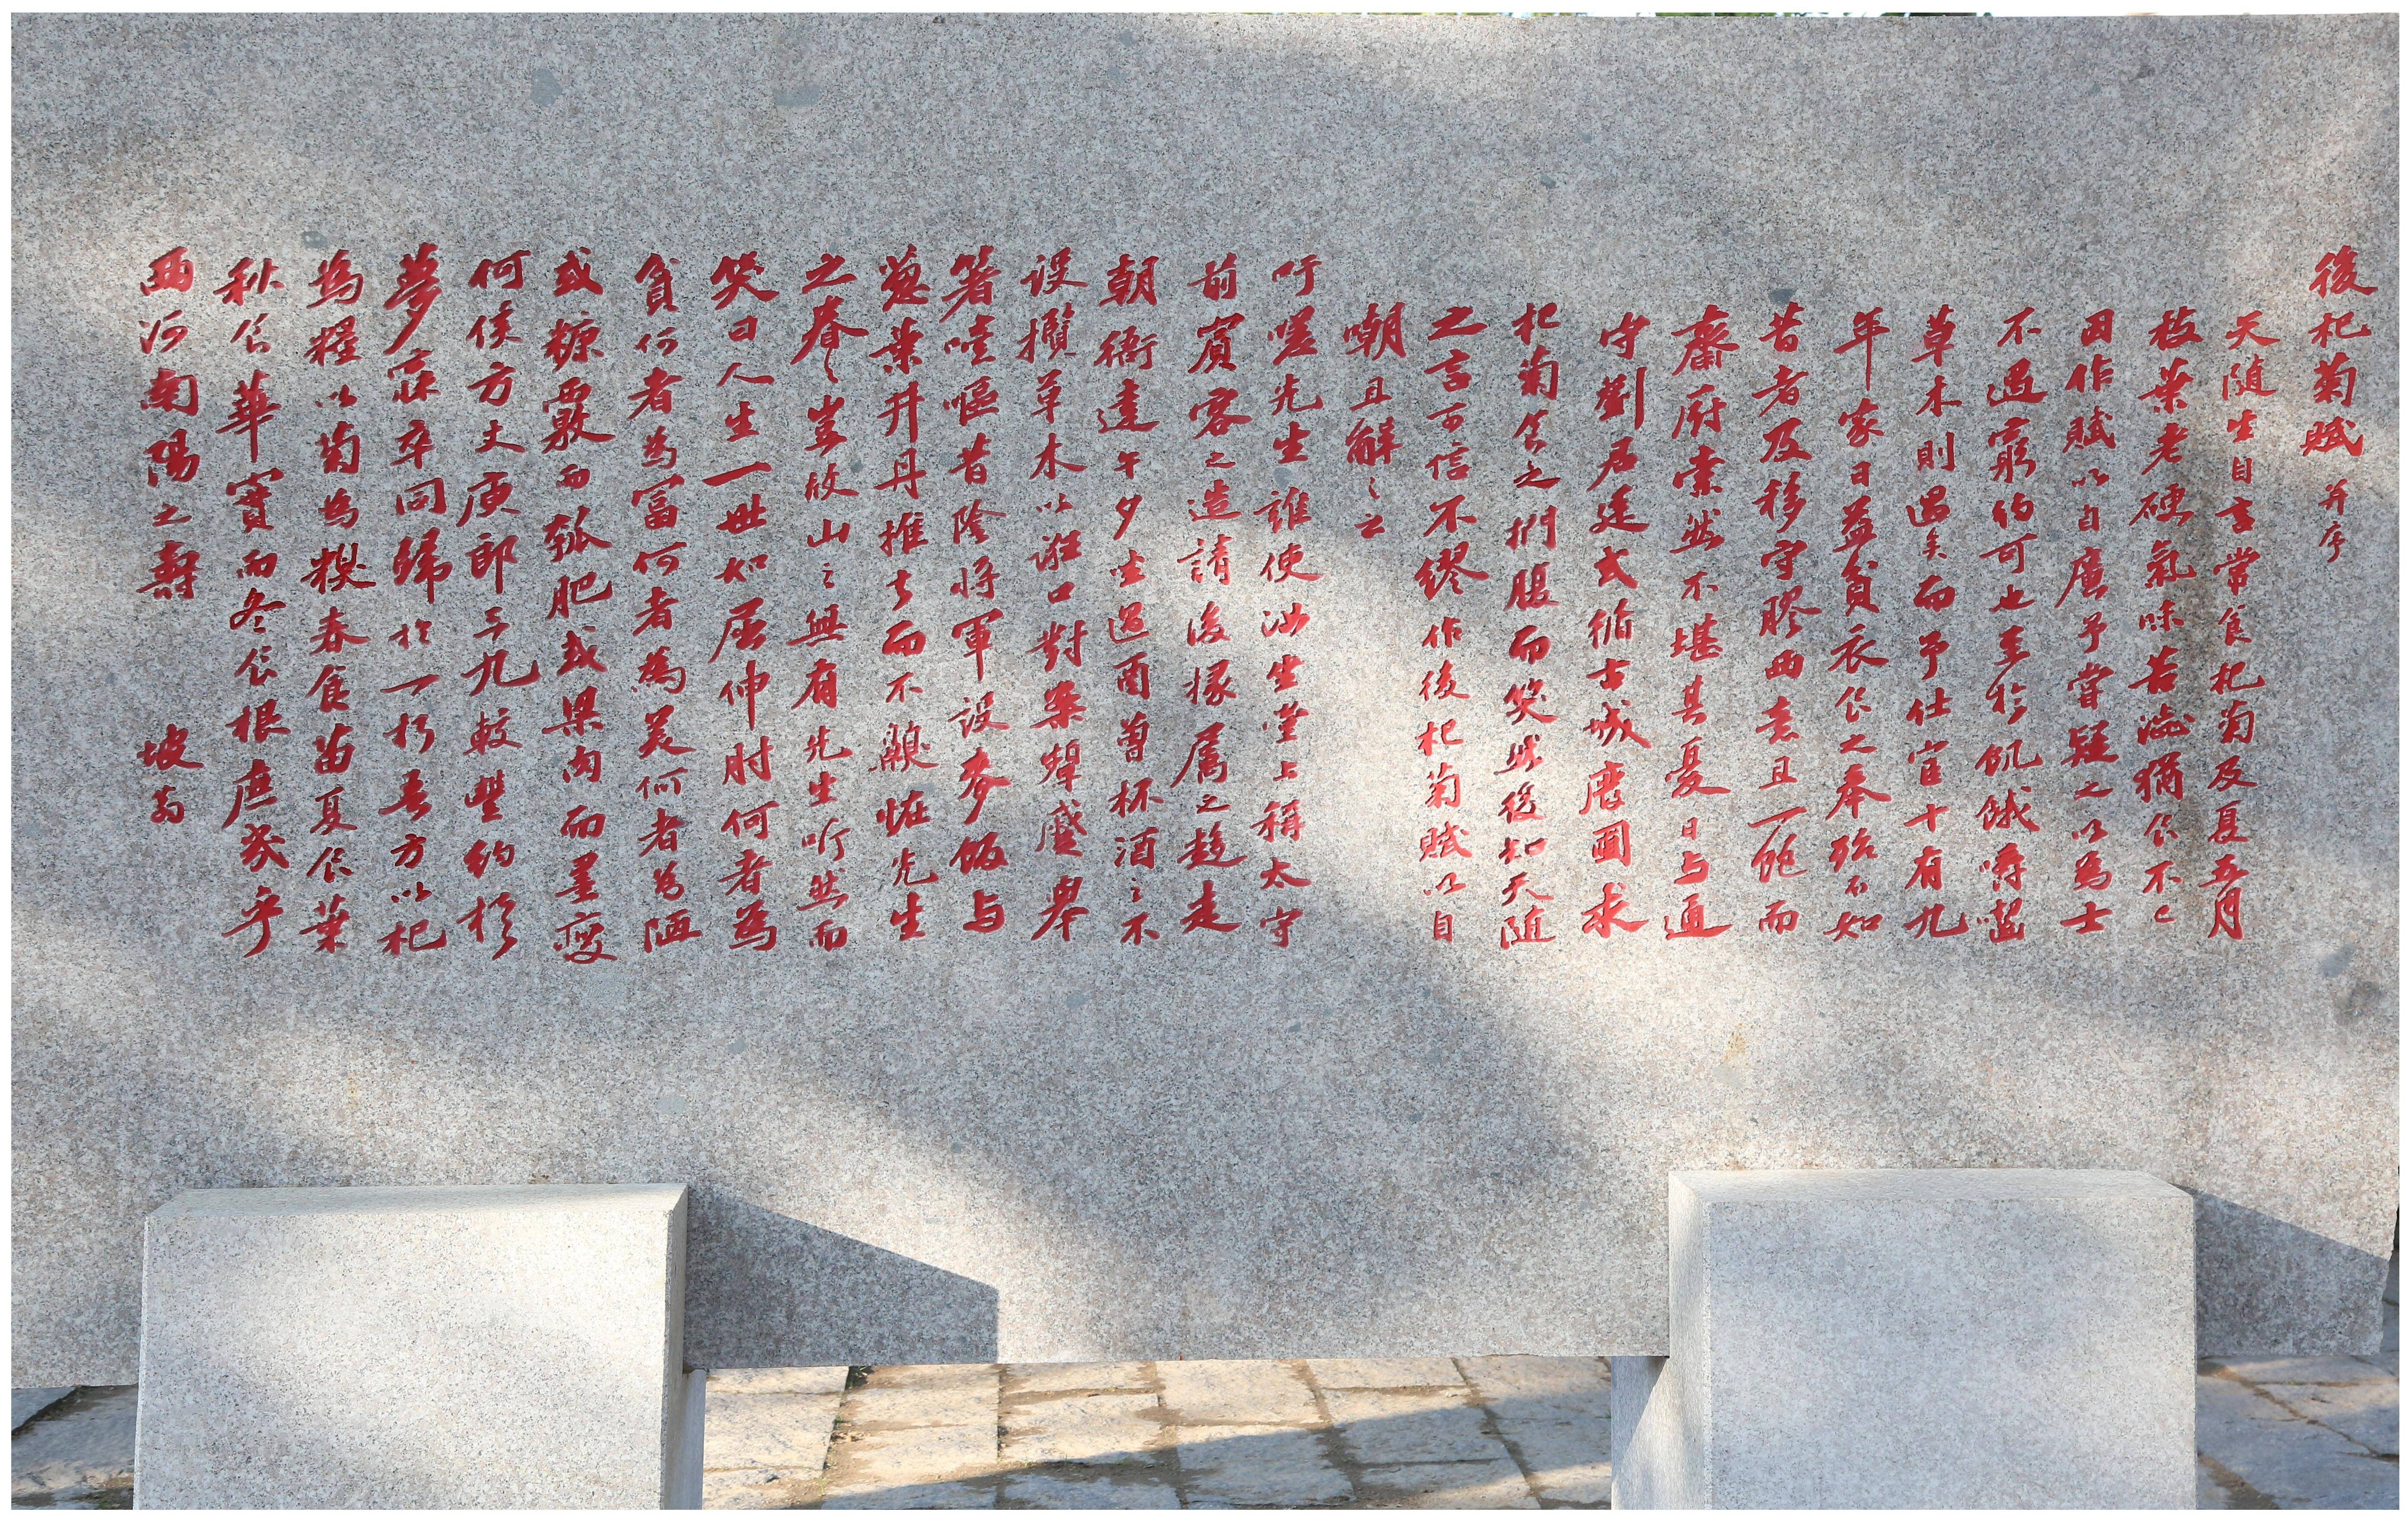 後杞菊賦 并序
天随生自言常食杞菊及夏五月
枝葉老硬氣味苦澁猶食不已
因作賦以自廣予嘗疑之以為士
不遇窮約可也至於飢餓嚼齧
草木則過矣而予仕宦十有九
年家日益貧衣食之奉殆不如
昔者及移守膠西意且一飽而
齋厨索然不堪其憂日与通
守劉君廷式循古城廢圃求
杞菊食之捫腹而笑然後知天随
之言可信不繆作後杞菊賦以自
嘲且解之云
吁嗟先生誰使汝坐堂上稱太守
前賓客之造請後掾属之趍走
朝衙達午夕坐過酉曽杯酒之不
设攬草木以誑口對案顰蹙舉
箸噎嘔昔陰将軍設麥飯与
葱葉井丹推去而不嗅怪先生
之眷眷豈故山之無有先生听然而
笑曰人生一世如屈伸肘何者為
貧何者為富何者為美何者為陋
或糠覈而瓠肥或粱肉而墨瘦
何侯方丈庾郎三九較豐約於
夢寐卒同歸於一朽吾方以杞
為糧以菊為糗春食苗夏食葉
秋食華實而冬食根庶幾乎
西河南陽之壽 坡翁